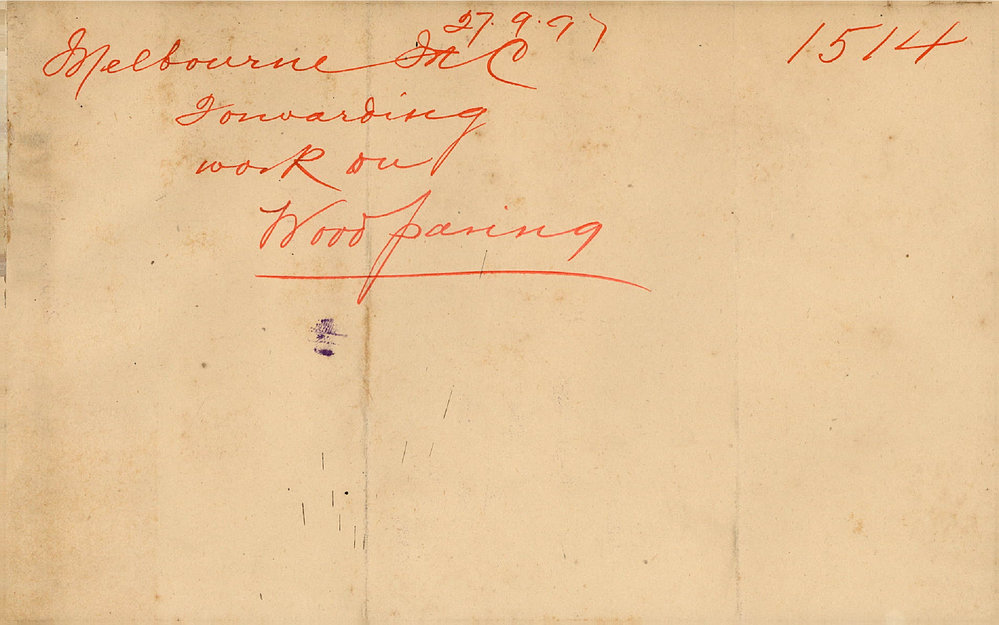 27.9.97
Melbourne M C 1514
Forwarding
work on
Wood paving